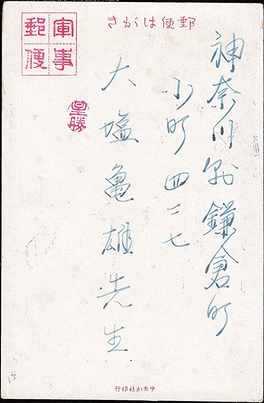 きがは便郵
軍事
郵便
神奈川県鎌倉町
小町四二七
大塩亀雄先生